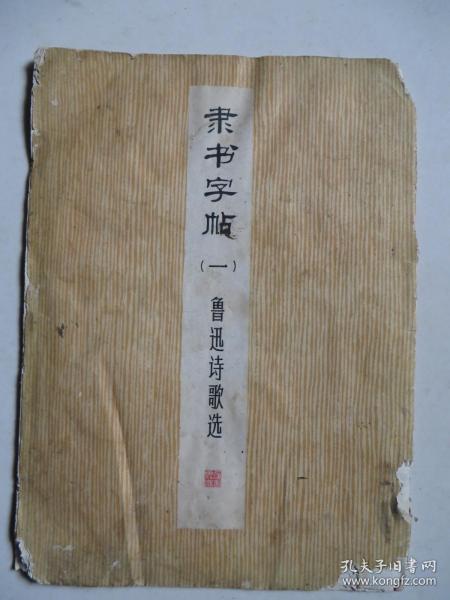 隶书字帖
（一）
鲁迅诗歌选
孔夫子旧书网
www.kongfz.com